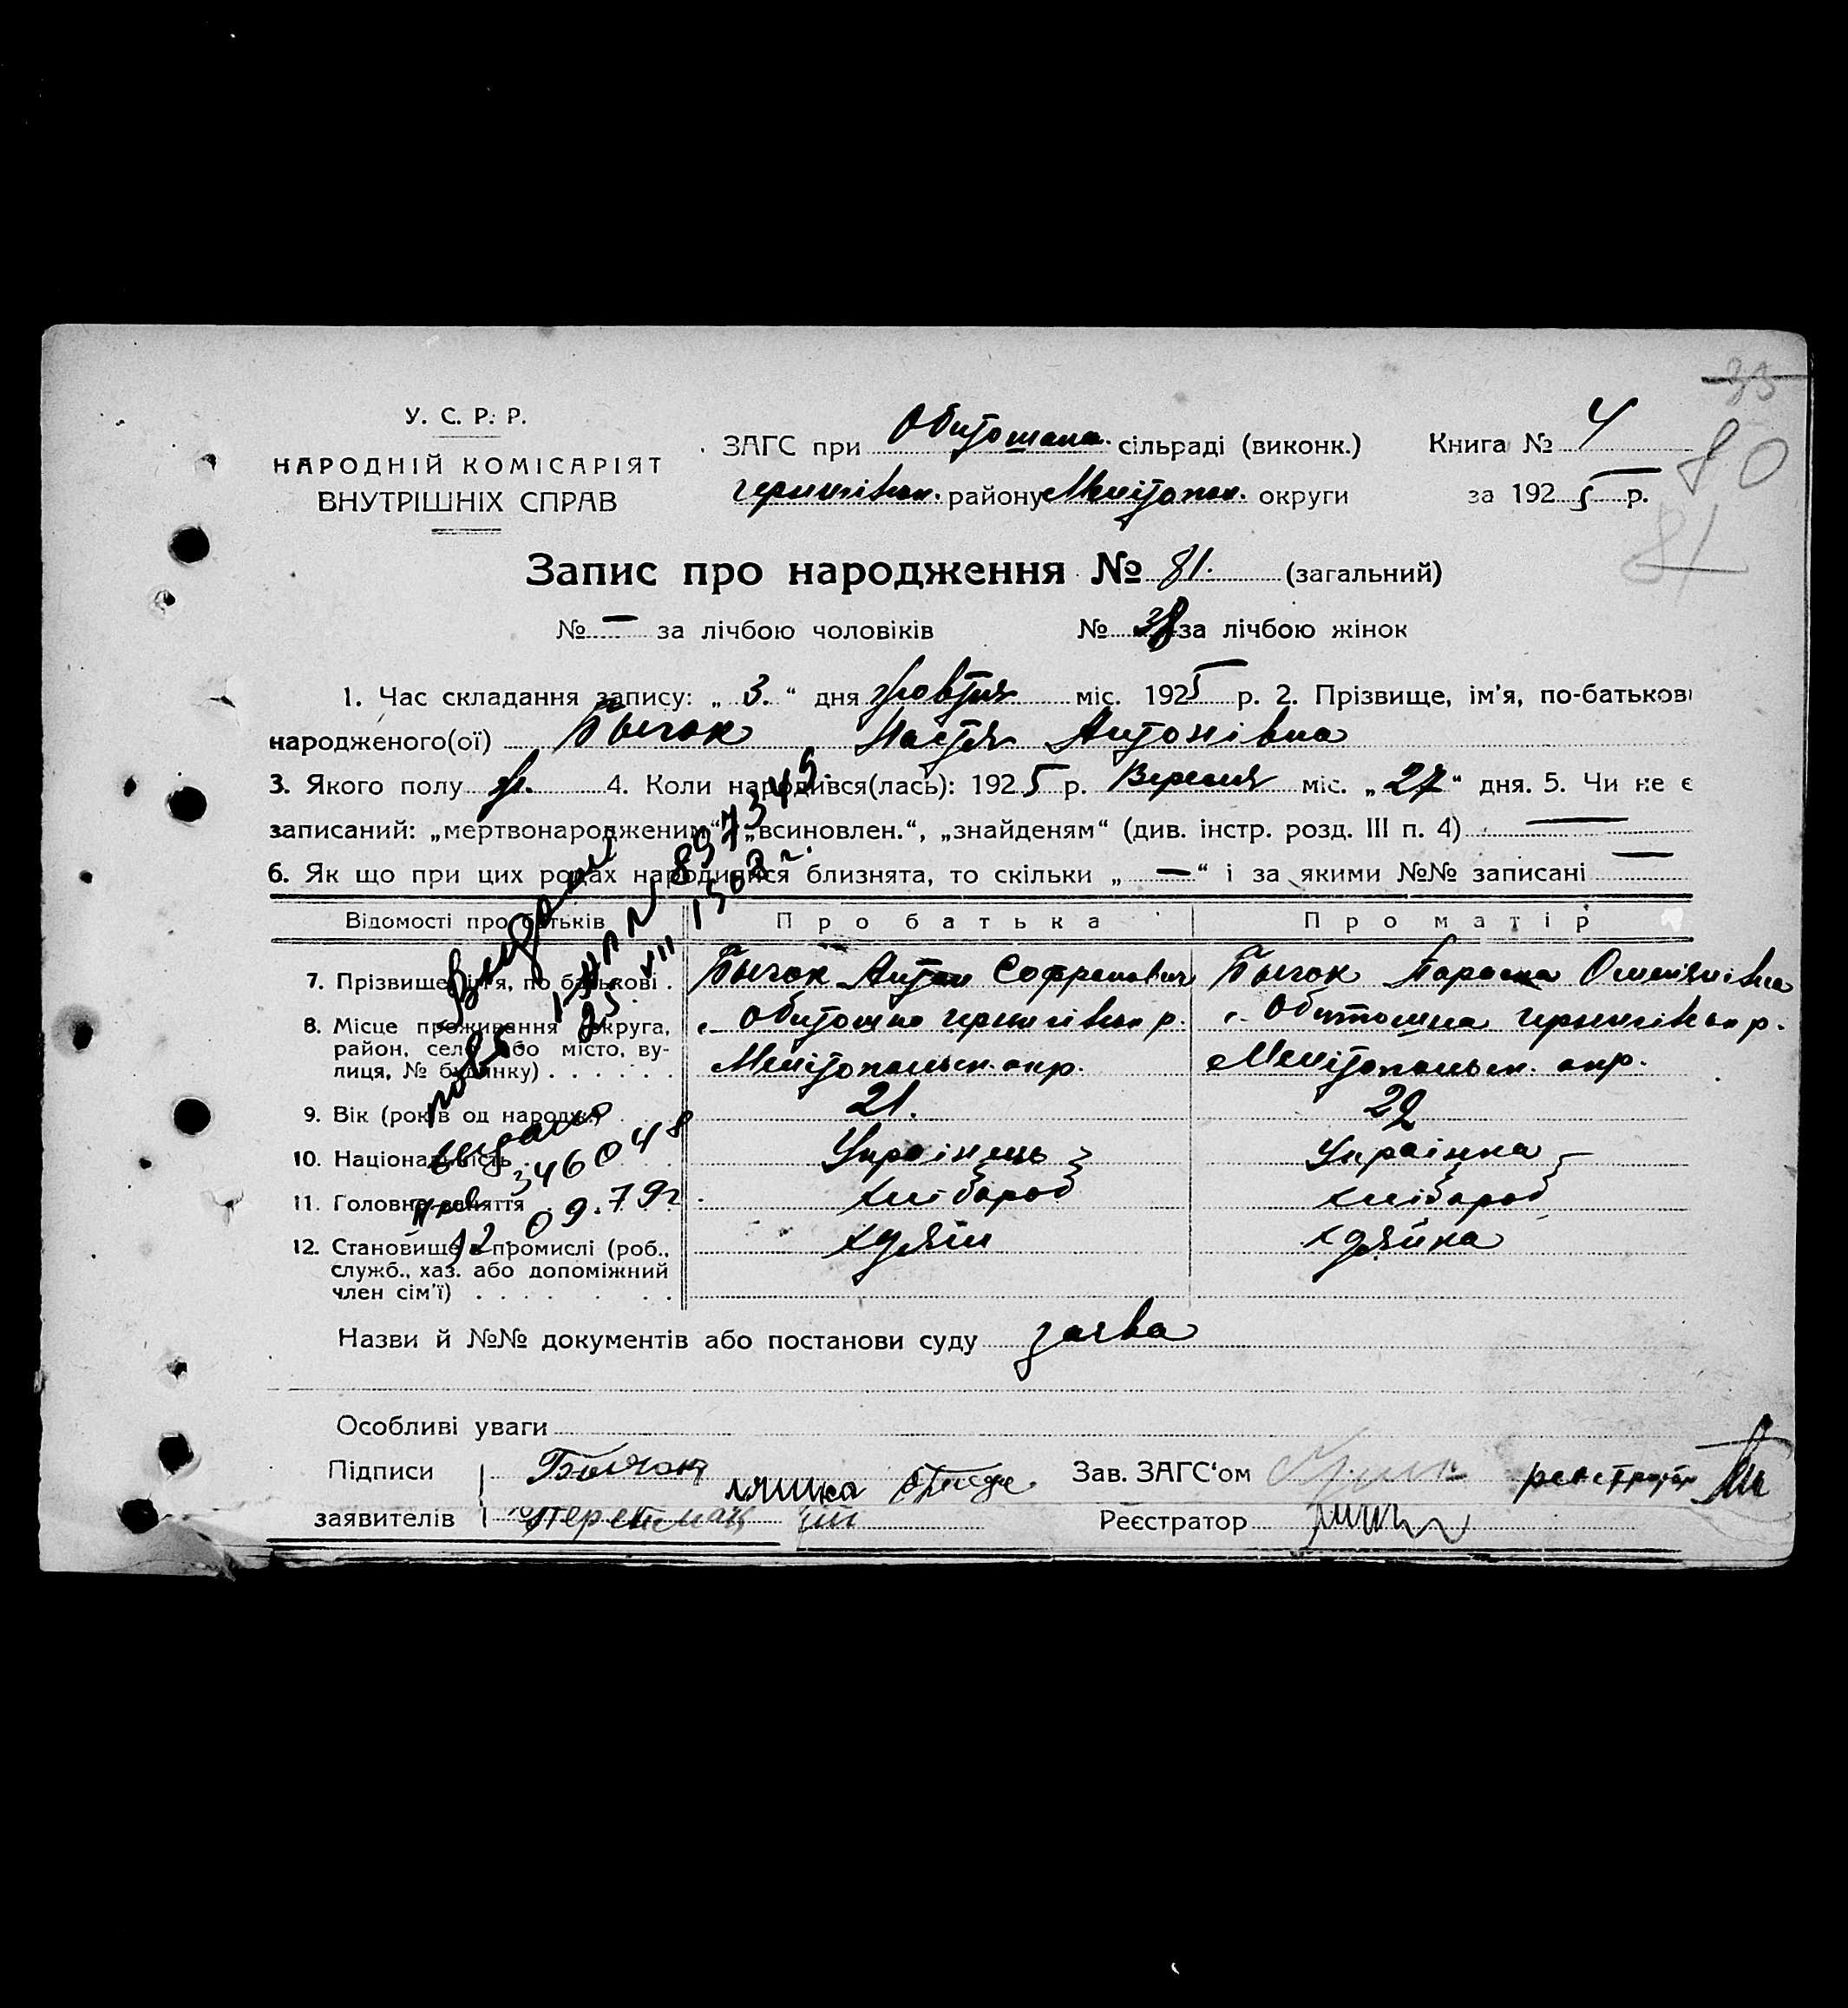 33
У. С. Р. Р.
НАРОДНІЙ КОМІСАРІЯТ
ВНУТРІШНІХ СПРАВ
ЗАГС при сільраді (виконк.) Книга № 4
80
району Мелітопол. округи за 1925 р.
81
Запис про народження № 81. (загальний)
№ — за лічбою чоловіків № 38 за лічбою жінок
1. Час складання запису: „ 3. “ дня жовтня міс. 1925 р. 2. Прізвище, ім'я, по-батькові
народженого(ої) Бычок Настя Антонівна
3. Якого полу ж. 4. Коли народився(лась): 1925 р. Вересня міс. „ 27 “ дня. 5. Чи не є
записаний: „мертвонародженим“, „всиновлен.“, „знайденям“ (див. інстр. розд. III п. 4) —
6. Як що при цих родах народилися близнята, то скільки „ — “ і за якими №№ записані —
Відомості про батьків Про батька Про матір
7. Прізвище, ім'я, по батькові . Бычок Антон Бычок Параска
8. Місце проживання (округа, с. Обиточна р. с. Обиточна р.
район, село або місто, ву-
лиця, № будинку) . . . . . . Мелітопольск. окр. Мелітопольск. окр.
9. Вік (років од народж.) 21. 22
10. Національність Українець Українка
11. Головне заняття хлібороб хлібороб
12. Становище в промислі (роб.,
служб., хаз. або допоміжний
член сім'ї) . . . . . . .
897345
346048
12 09.79г.
Назви й №№ документів або постанови суду заява
Особливі уваги
Підписи Бычок Зав. ЗАГС'ом
заявителів Реєстратор